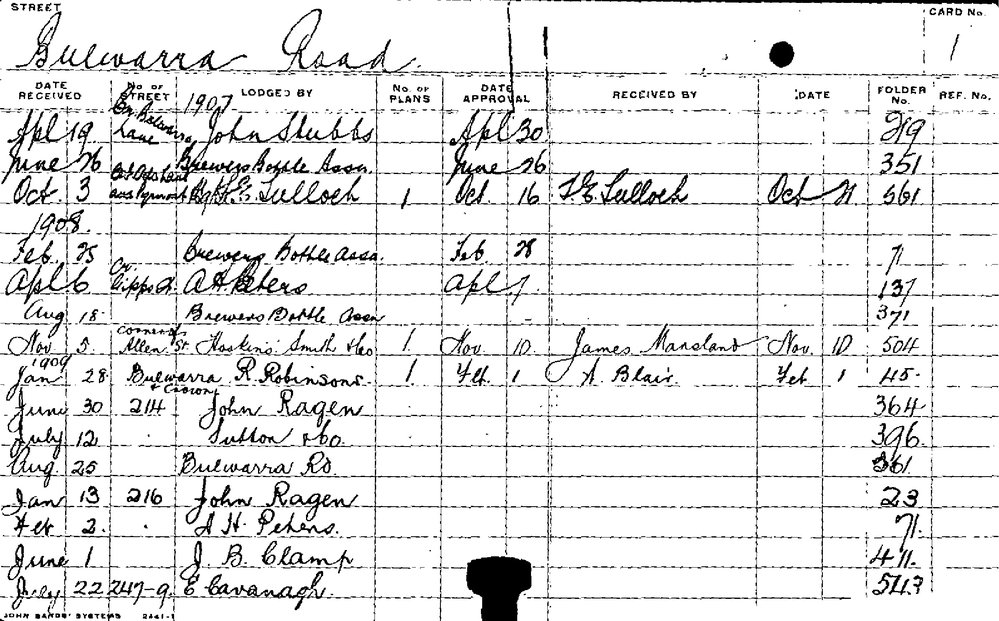 STREET
CARD No.
Bulwarra Road.
1
DATE RECEIVED
No. OF STREET
LODGED BY
No. OF PLANS
DATE APPROVAL
RECEIVED BY
DATE
FOLDER No.
REF. No.
1907
Apl 19 Lane John Stubbs Apl 30 219
June 26 Brewers Bottle Assn. June 26 351
Oct. 3 Tulloch 1 Oct. 16 Tulloch Oct 21 561
1908.
Feb. 25 Brewers Bottle Assn. Feb. 28 71
Apl 6 Cr. Gipps St. A H Peters Apl 7. 137
Aug 18 Brewers Bottle Assn 371
Nov. 5. Corner of Allen St. Hoskins Smith &Co 1. Nov. 10. James Mansland Nov. 10 504
1909
Jan 28. Bulwarra R. Robinsons. 1. Feb. 1 A Blair. Feb 1 45.
June 30 214 John Ragen 364
July 12. Sutton &Co. 396.
Aug. 25 Bulwarra Rd. 361
Jan 13 216 John Ragen 23
Feb 2. . A H. Peters. 71.
June 1 J. B. Clamp 411.
July 22 247-9. E Cavanagh 543
JOHN SANDS' SYSTEMS 2441-1